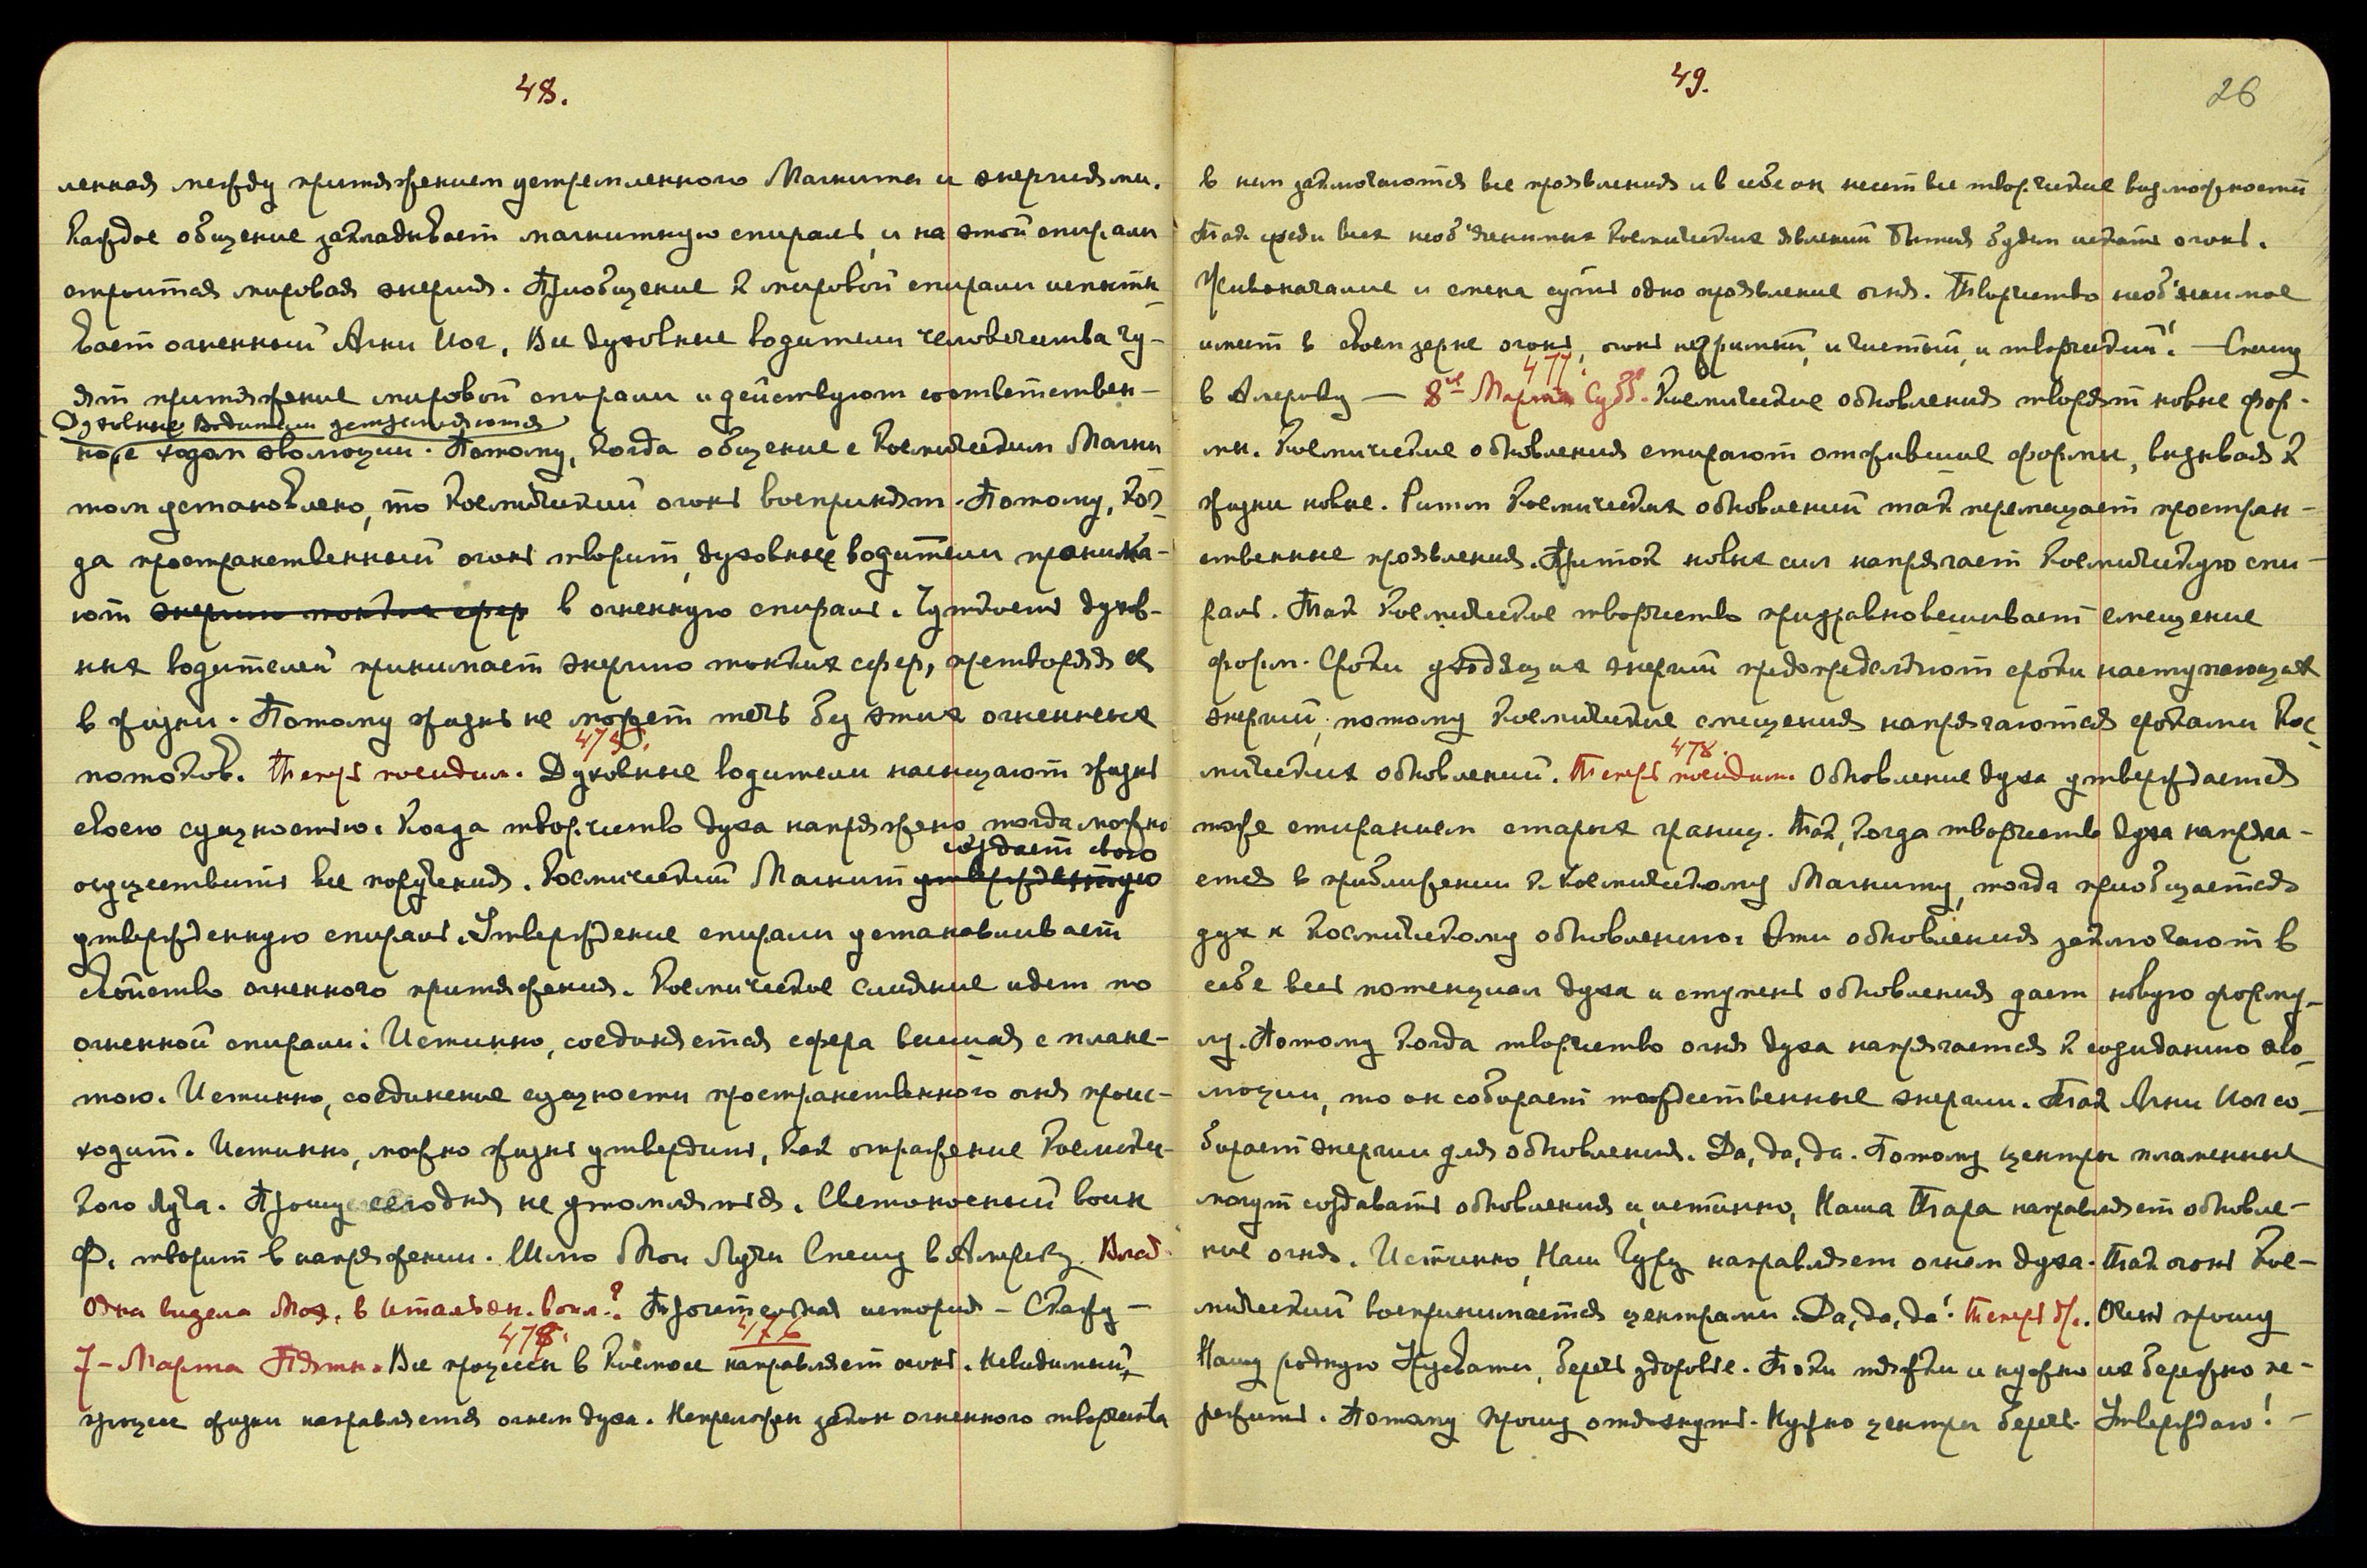 48.
ленная между притяжением устремленного Магнита и энергиями.
Каждое общение закладывает магнитную спираль, и на этой спирали
строится мировая энергия. Приобщение к мировой спирали испыты
вает огненный Агни Иог. Все духовные водители человечества чу-
ят притяжение мировой спирали и действуют соответствен-
Духовные Водители устремляются
но/е ходом эволюции. Потому, когда общение с Космическим Магни
том установлено, то Космический огонь воспринят. Потому, ког-
да пространственный огонь творит, духовные водители проника-
ют энергию тонких сфер в огненную спираль. Чуткость духов-
ных водителей принимает энергию тонких сфер, претворяя ее
в жизни. Потому жизнь не может течь без этих огненных
475.
потоков. Теперь посидим. Духовные водители насыщают жизнь
своею сущностью. Когда творчество духа напряжено, тогда можно
создает свою
осуществить все поручения. Космический Магнит утвержденную
утвержденную спираль. Утверждение спирали устанавливает
свойство огненного притяжения. Космическое слияние идет по
огненной спирали. Истинно, соединяется сфера высшая с плане-
тою. Истинно, соединение сущности пространственного огня проис-
ходит. Истинно, можно жизнь утвердить, как отражение Космичес-
кого Луча. Прошу сегодня не утомляться. Светоносный воин
Ф. творит в напряжении. Шлю Мои Лучи Спешу в Америку. Влад.
Одна видела Мох. в итальян. вокл.? Трогательная история – Скажу –
478. 476
7 – Марта Пятн. Все процессы в Космосе направляет огонь. Невидимый,
процесс жизни направляется огнем духа. Непреложен закон огненного творчества
49.
26
в нем заключаются все проявления и в себе он несет все творческие возможности
Так среди всех необъяснимых Космических явлений Бытия будем искать огонь.
Живоначалие и смена суть одно проявление огня. Творчество необъяснимое
имеет в своем зерне огонь, огонь незримый, и чистый, и творческий! – Спешу
477.
в Америку — 8ое Марта Субб. Космические обновления творят новые фор-
мы. Космические обновления стирают отжившие формы, вызывая к
жизни новые. Ритм Космических обновлений так перемещает простран-
ственные проявления. Приток новых сил напрягает Космическую спи-
раль. Так Космическое творчество приуравновешивает смещение
форм. Сроки уходящих энергий предопределяют сроки наступающих
энергий; потому Космические смещения напрягаются сроками Кос-
478.
мических обновлений. Теперь посидим. Обновление духа утверждается
тоже стиранием старых границ. Так, когда творчество духа напряга-
ется в приближении к Космическому Магниту, тогда приобщается
дух к Космическому обновлению. Эти обновления заключают в
себе весь потенциал духа и ступень обновления дает новую форму-
лу. Потому когда творчество огня духа напрягается к созиданию эво-
люции, то он собирает тождественные энергии. Так Агни Иог со-
бирает энергии для обновления. Да, да, да. Потому центры пламенные
могут создавать обновления и, истинно, Наша Тара направляет обновле-
ние огня. Истинно, Наш Гуру направляет огнем духа. Так огонь Кос-
мический воспринимается центрами. Да, да, да! Теперь бл. Очень прошу
Нашу родную Урусвати, беречь здоровье. Токи тяжки и нужно их бережно пе-
режить. Потому прошу отдохнуть. Нужно центры беречь. Утверждаю! –